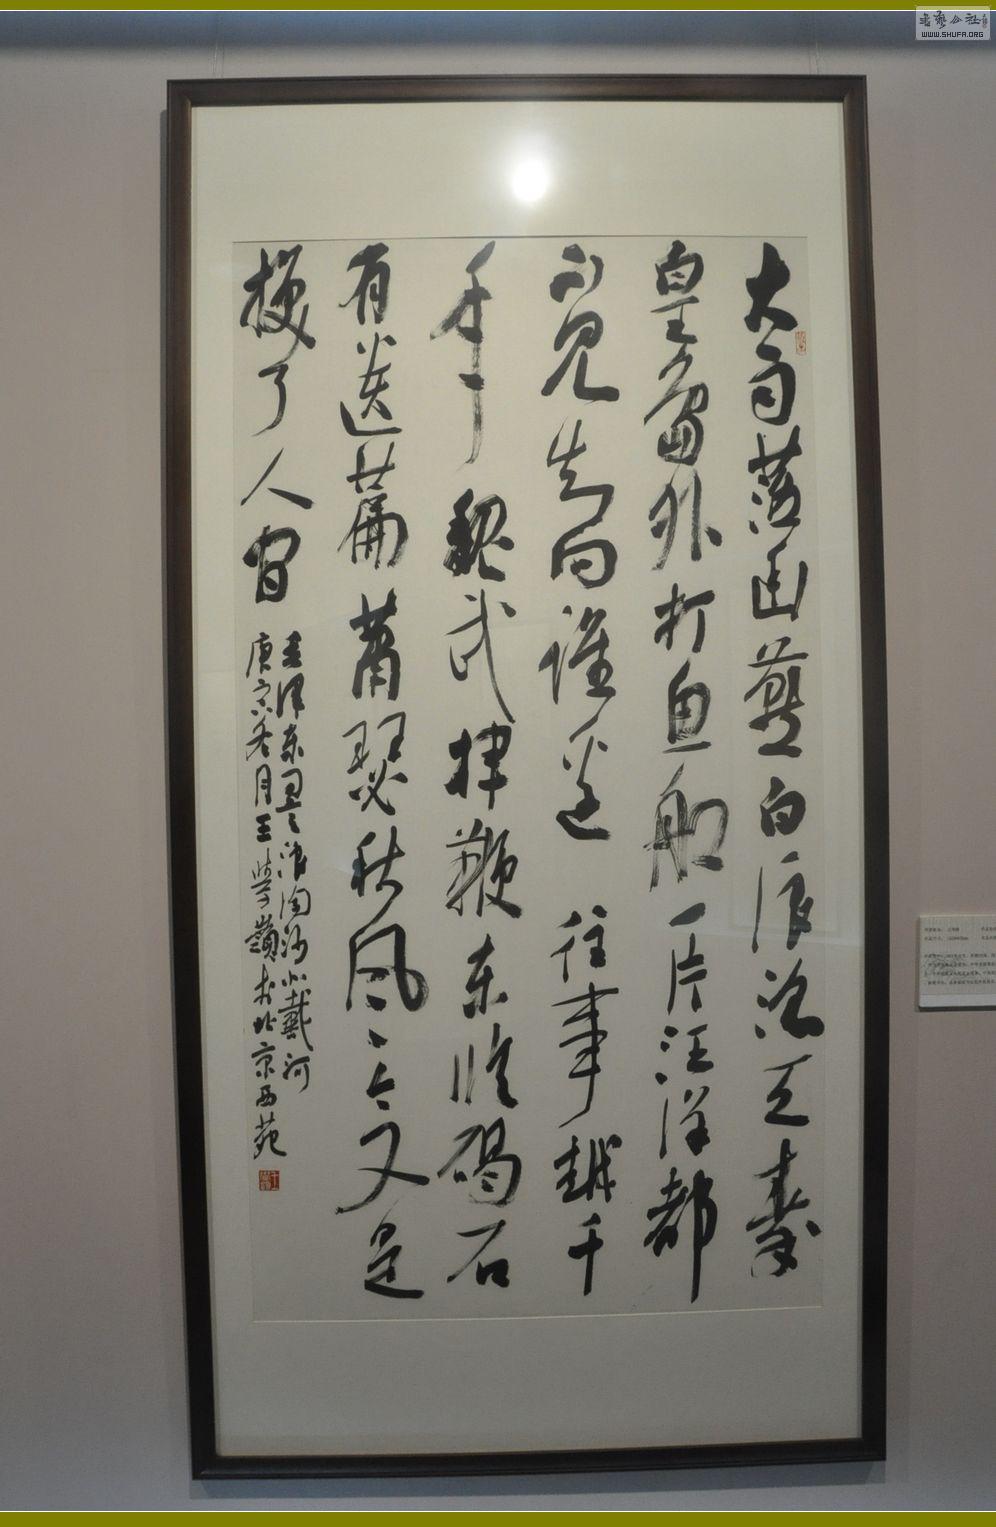 大雨落幽燕白浪滔天秦
皇島外打魚船一片汪洋都
不見知向誰邊往事越千
年魏武揮鞭東臨碣石
有遺篇蕭瑟秋風今又是
換了人間
毛澤東詞浪淘沙北戴河
庚寅冬月王學嶺於北京西苑
WWW.SHUFA.ORG